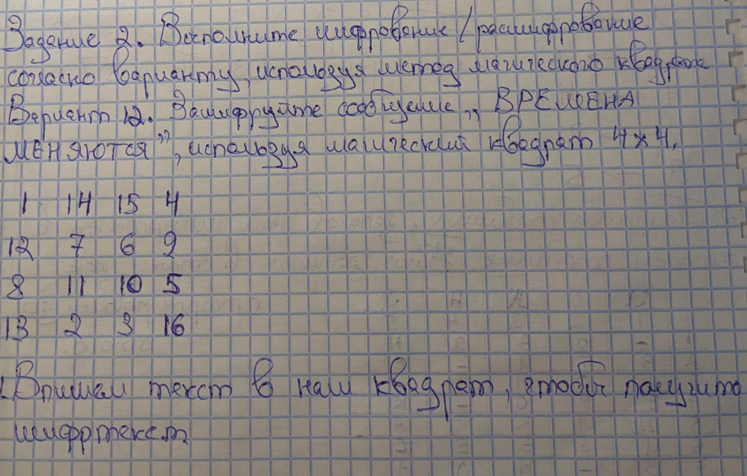 Задание 2. Выполните шифрование/расшифрование
согласно варианту, используя метод магического квадрата
Вариант 12. Зашифруйте сообщение „ВРЕМЕНА
МЕНЯЮТСЯ", используя магический квадрат 4×4.
1 14 15 4
12 7 6 9
8 11 10 5
13 2 3 16
Впишем текст в наш квадрат, чтобы получить
шифртекст